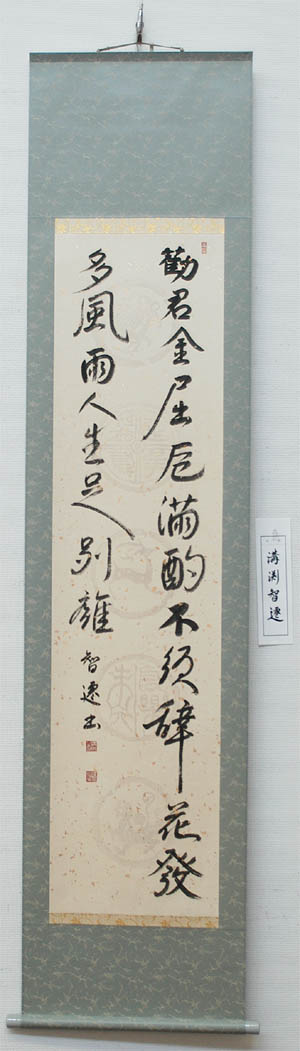 勸君金屈卮滿酌不須辭花發
多風雨人生足別離
智遼書
溝渕智遼